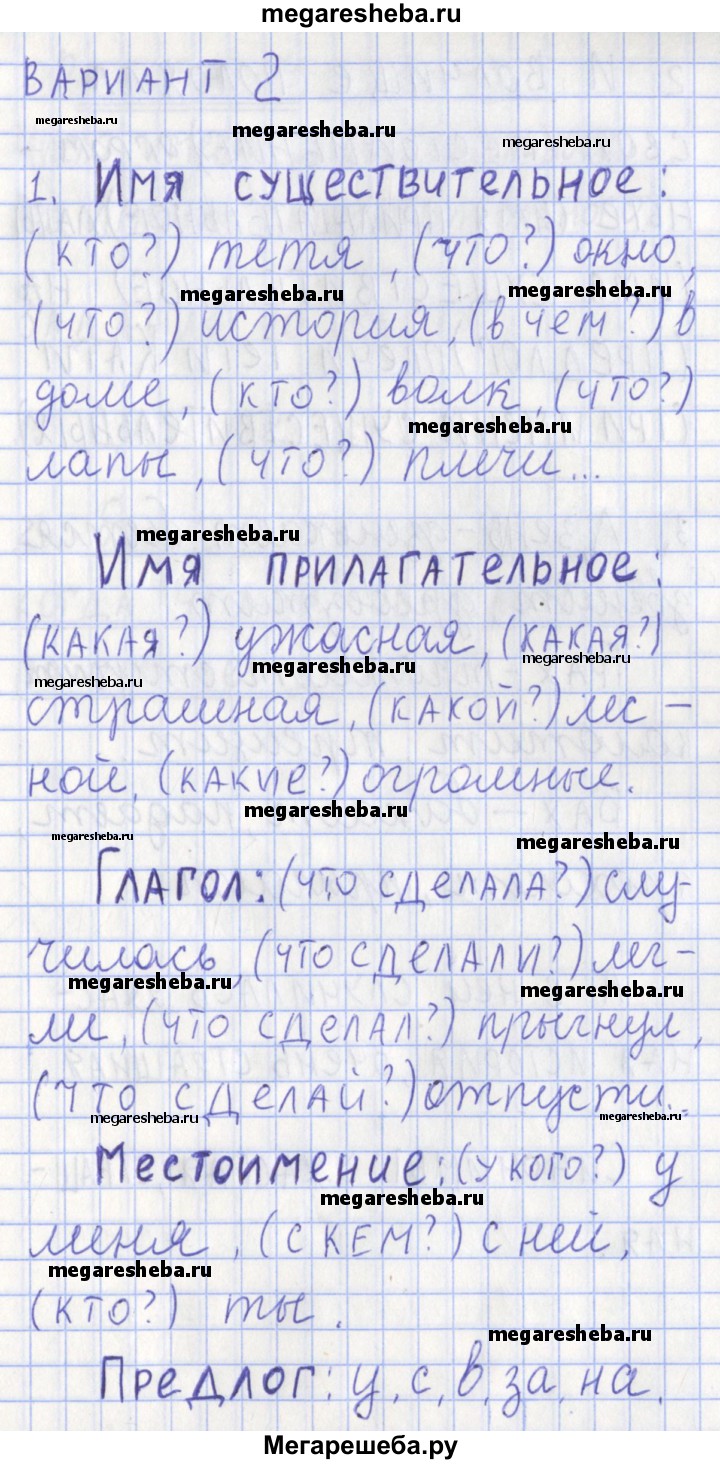 megaresheba.ru
ВАРИАНТ 2
megaresheba.ru
megaresheba.ru
megaresheba.ru
1. Имя существительное:
(кто?) тетя, (что?) окно,
megaresheba.ru
megaresheba.ru
(что?) история, (в чем?) в
доме, (кто?) волк, (что?)
megaresheba.ru
лапы, (что?) плечи...
megaresheba.ru
Имя прилагательное:
(какая?) ужасная, (какая?)
megaresheba.ru
megaresheba.ru
megaresheba.ru
страшная, (какой?) лес-
ной, (какие?) огромные.
megaresheba.ru
megaresheba.ru
megaresheba.ru
Глагол: (что сделала?) слу-
чилась, (что сделали?) лег-
megaresheba.ru
megaresheba.ru
ли, (что сделал?) прыгнул,
(что сделай?) отпусти...
megaresheba.ru
megaresheba.ru
Местоимение: (у кого?) у
megaresheba.ru
меня, (с кем?) с ней,
megaresheba.ru
(кто?) ты.
megaresheba.ru
Предлог: у, с, в, за, на.
Мегарешеба.ру